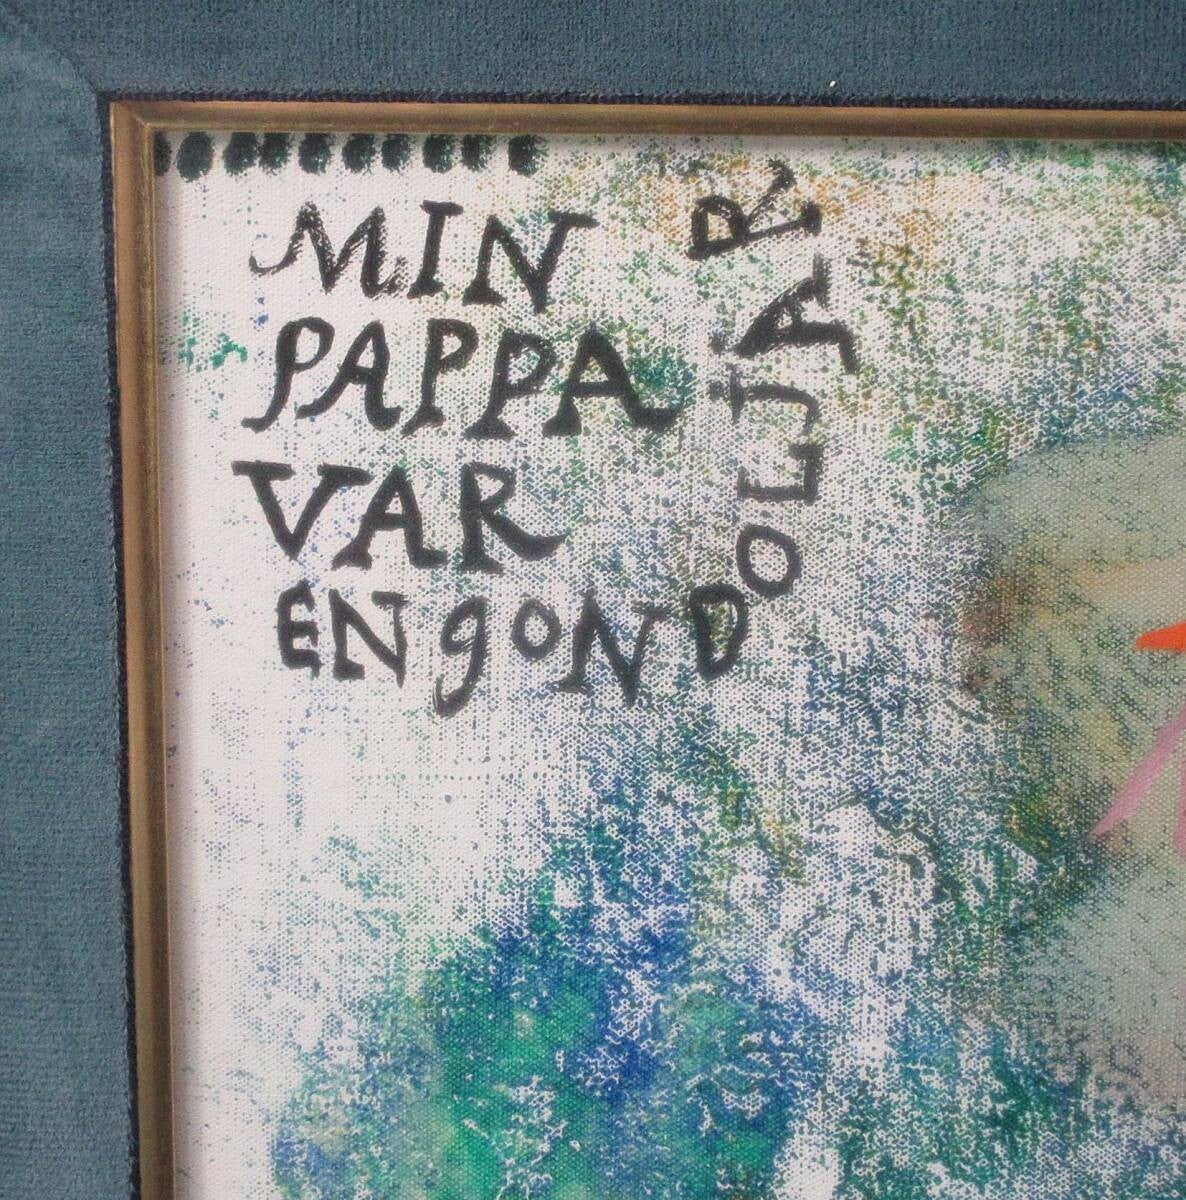 MIN
PAPPA
VAR
EN gONDOLJÄR